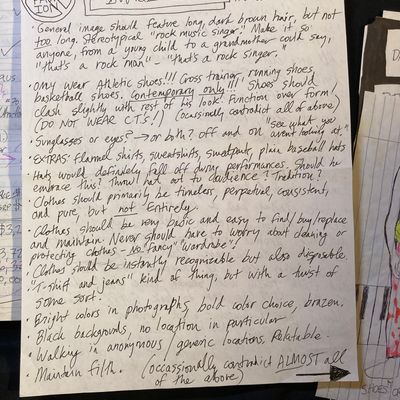 "General image should feature long, dark brown hair, but not
too long. Stereotypical "rock music singer." Make it so
anyone, from a young child to a grandmother could say,
"that's a rock man" - "that's a rock singer."
• ONLY wear Athletic Shoes!!! Cross trainer, running shoes,
basketball shoes. Contemporary only!!! Shoes should
clash slightly with rest of his look. Function over form!
(DO NOT WEAR C.T.'s!) (occasionally contradict all of above)
• Sunglasses or eyes? → or both? Off and on "see what you
aren't looking at."
• "EXTRAS" flannel shirts, sweatshirts, sweatpants, plain baseball hats
Hats would definitely fall off during performances. Should he
embrace this? Throw hat out to audience? Tradition?
• Clothes should primarily be timeless, perpetual, consistent,
and pure, but not entirely.
• Clothes should be very basic and easy to find/buy/replace
and maintain. Never should have to worry about cleaning or
protecting clothes - no fancy "wardrobe"!
• Clothes should be instantly recognizable but also disposable.
"T-shirt and jeans" kind of thing, but with a twist of
some sort.
• Bright colors in photographs, bold color choice, brazen.
• Black backgrounds, no location in particular
• Walking in anonymous/generic locations. Relatable.
• Maintain filth. (occasionally contradict ALMOST all
of the above)
SHOES